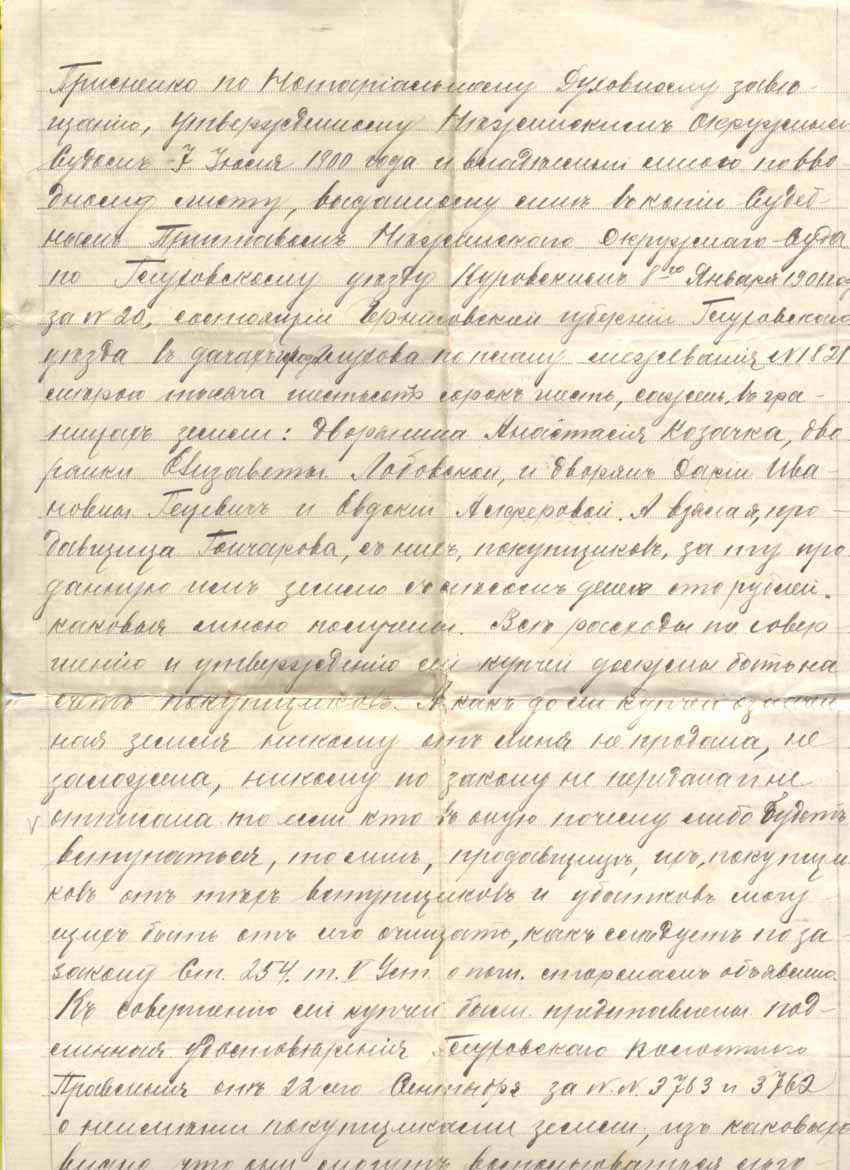 Присненко по Нотаріальному Духовному завѣ-
щанію, утвержденному Нѣжинскимъ Окружнымъ
Судомъ 7 Іюля 1900 года и владѣемый мною по вво-
дному листу, выданному мнѣ въ копіи Судеб-
нымъ Приставомъ Нѣжинскаго Окружнаго Суда
по Глуховскому уѣзду Куровскимъ 8го Января 1901 год
за № 20, состоящій Черниговской губерніи Глуховского
уѣзда въ дачахъ города Глухова по плану межеванія № 1821
мѣрою тысяча шестьсотъ сорокъ шесть, сажень, въ гра-
ницахъ земли: дворянина Анастасія Козачка, дво
рянки Елизаветы Лобовской, и дворянъ Даріи Ива-
новны и Евдокіи Алферовой. А взяла я, про-
давщица Гончарова, съ нихъ, покупщиковъ, за ту про
данную имъ землю денегъ сто рублей.
каковыя мною получены. Всѣ расходы по совер
шенію и утвержденію сей купчей должны быть на
счетъ покупщиковъ. А какъ до сей купчей означен
ная земля никому отъ меня не продана, не
заложена, никому по закону не передана и не
отписана то если кто въ оную почему либо будетъ
вступаться, то мнѣ, продавщицѣ, ихъ, покупщи
ковъ отъ тѣхъ вступщиковъ и убытковъ могу
щихъ быть отъ чего очищать, какъ слѣдуетъ по за
закону Ст. 254. т. V Уст. о пош. сторонамъ объявлено.
Къ совершенію сей купчей были представлены под-
линная удостовѣренія Глуховского Волостного
Правленія отъ 22 сего Сентября за №.№. 3763 и 3762
о неимѣніи покупщиками земли, изъ каковыхъ
видно что они могутъ воспользоваться льго-